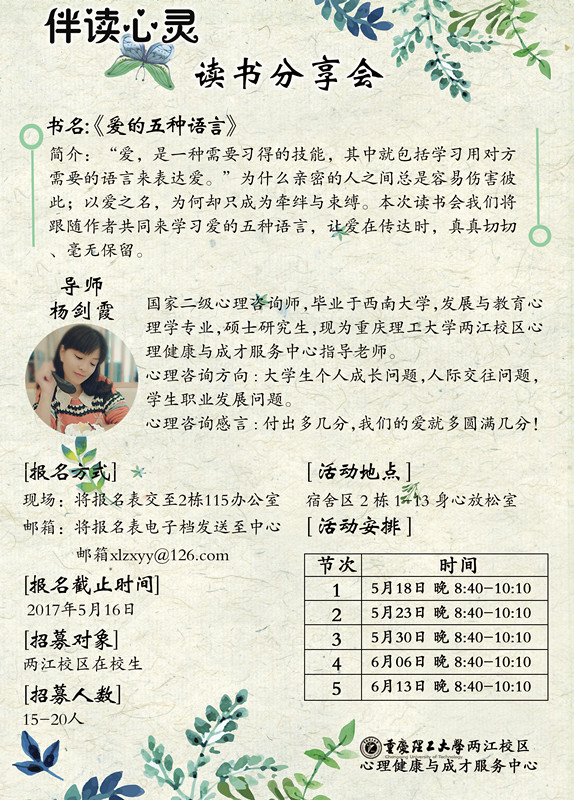 伴读心灵
读书分享会
书名:《爱的五种语言》
简介：“爱，是一种需要习得的技能，其中就包括学习用对方
需要的语言来表达爱。”为什么亲密的人之间总是容易伤害彼
此；以爱之名，为何却只成为牵绊与束缚。本次读书会我们将
跟随作者共同来学习爱的五种语言，让爱在传达时，真真切切
、毫无保留。
导师
杨剑霞
国家二级心理咨询师,毕业于西南大学,发展与教育心
理学专业,硕士研究生,现为重庆理工大学两江校区心
理健康与成才服务中心指导老师。
心理咨询方向:大学生个人成长问题,人际交往问题,
学生职业发展问题。
心理咨询感言:付出多几分,我们的爱就多圆满几分!
[报名方式]
现场：将报名表交至2栋115办公室
邮箱：将报名表电子档发送至中心
邮箱xlzxyy@126.com
[报名截止时间]
2017年5月16日
[招募对象]
两江校区在校生
[招募人数]
15-20人
[活动地点]
宿舍区2栋1-13身心放松室
[活动安排]
节次 时间
1 5月18日 晚 8:40-10:10
2 5月23日 晚 8:40-10:10
3 5月30日 晚 8:40-10:10
4 6月06日 晚 8:40-10:10
5 6月13日 晚 8:40-10:10
重慶理工大學两江校区
Chongqing University of Technology
心理健康与成才服务中心